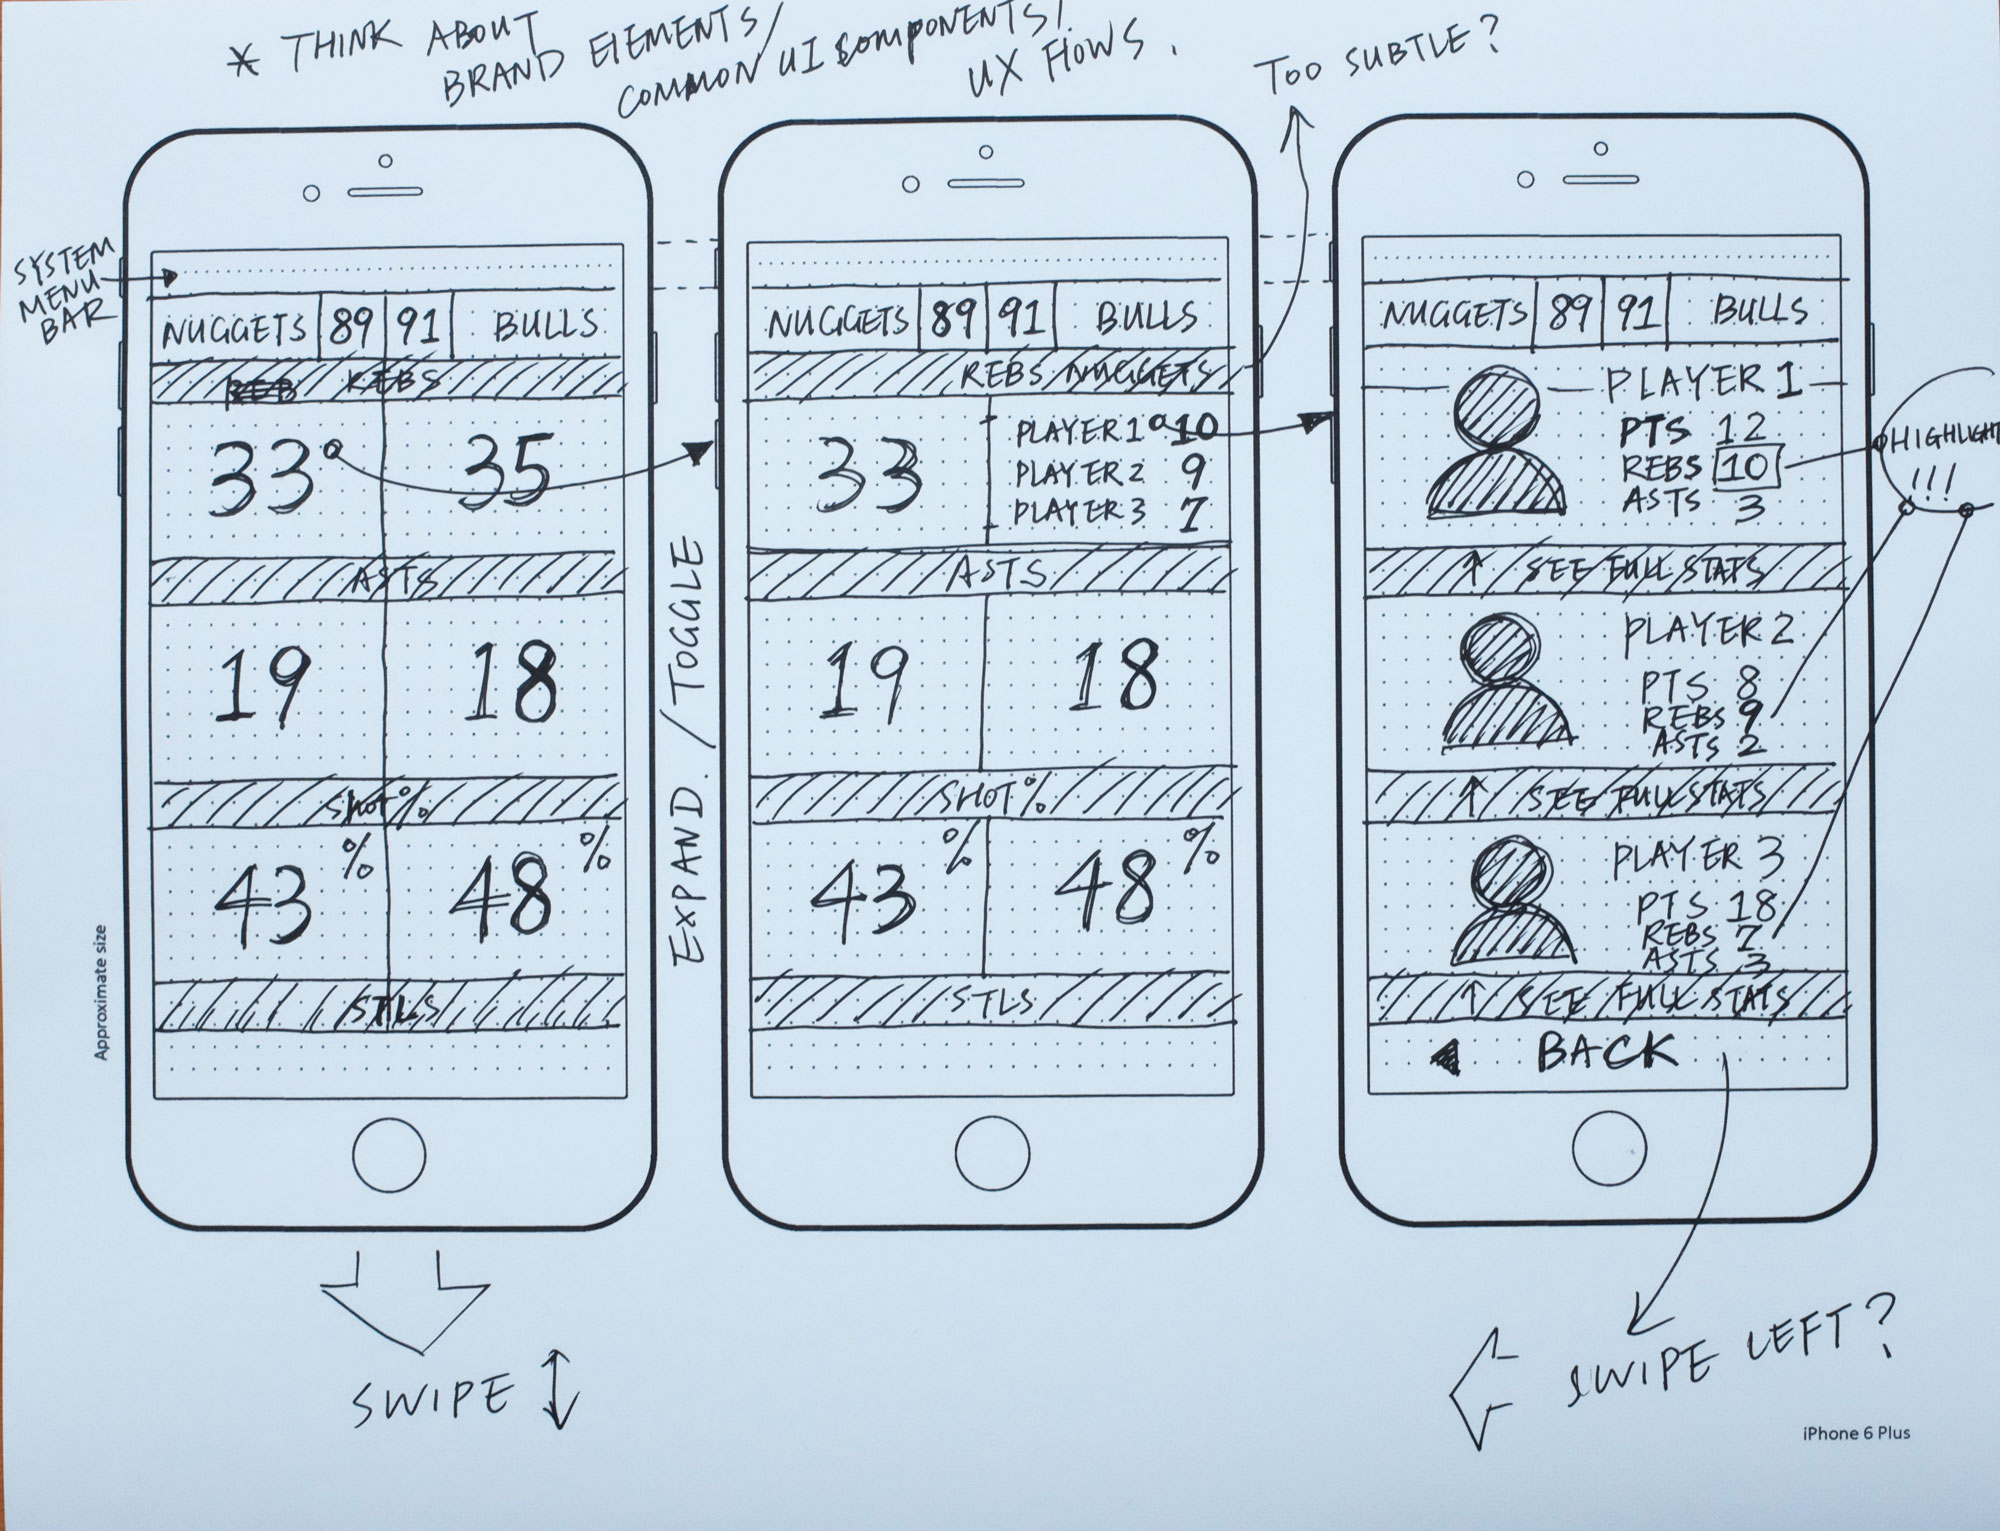 * THINK ABOUT
BRAND ELEMENTS/
COMMON UI COMPONENTS/
UX FLOWS.
TOO SUBTLE?
SYSTEM
MENU
BAR
NUGGETS 89 91 BULLS
REB REBS
33 35
ASTS
19 18
SHOT%
43% 48%
STLS
SWIPE
EXPAND / TOGGLE
NUGGETS 89 91 BULLS
REBS NUGGETS
33
PLAYER 1 10
PLAYER 2 9
PLAYER 3 7
ASTS
19 18
SHOT%
43% 48%
STLS
NUGGETS 89 91 BULLS
PLAYER 1
PTS 12
REBS 10
ASTS 3
↑ SEE FULL STATS
PLAYER 2
PTS 8
REBS 9
ASTS 2
↑ SEE FULL STATS
PLAYER 3
PTS 18
REBS 7
ASTS 3
↑ SEE FULL STATS
BACK
HIGHLIGHT
!!!
SWIPE LEFT?
Approximate size
iPhone 6 Plus